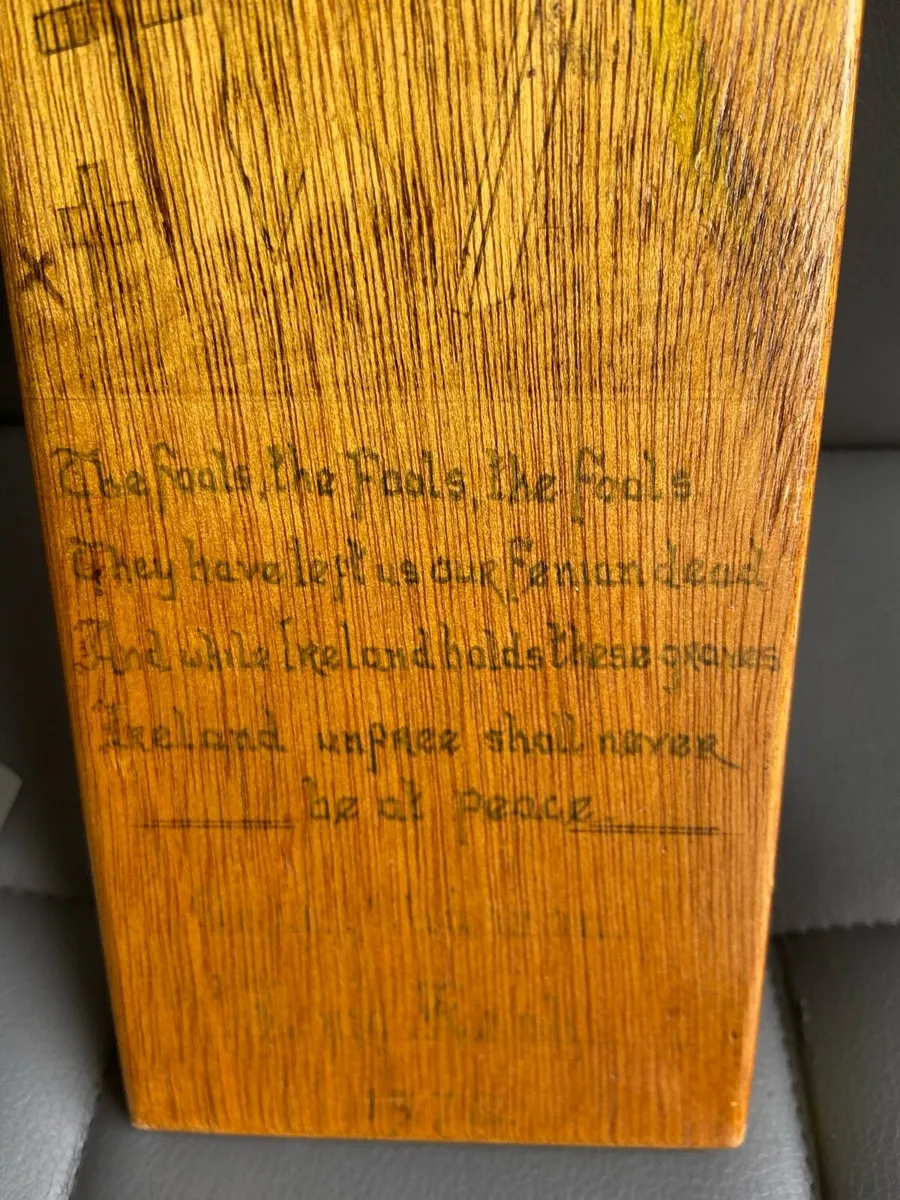 The fools, the Fools, the fools
They have left us our fenian dead
And while Ireland holds these graves
Ireland unfree shall never
be at peace.